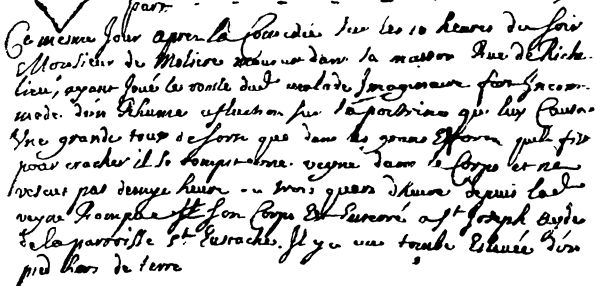 part.
Ce mesme Jour apres la Comedie Sur les 10 heures du Soir
Monsieur de Moliere mourut dans Sa maison Rue de Riche-
lieu, ayant Joué le roolle dud. malade Imaginaire fort Incom-
modé d'un Rhume et fluction Sur la poitrine qui luy Causoit
Une grande toux de Sorte que dans les grans Efforts qu'il fist
pour cracher il Se rompit une veyne dans le Corps et ne
vescut pas demye heure ou trois quars d'heure depuis lad.
veyne Rompue Et Son Corps Est Enterré a St Joseph ayde
de la parroisse St Eustache. Il y a une tombe Eslevée d'un
pied hors de terre